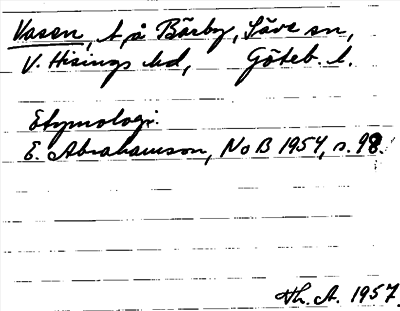 Vasen, t på Bärby, Säve sn,
V. Hisings hd, Göteb. l.
Etymologi.
E. Abrahamson, NoB 1954, s. 98.
Th. A. 1957.